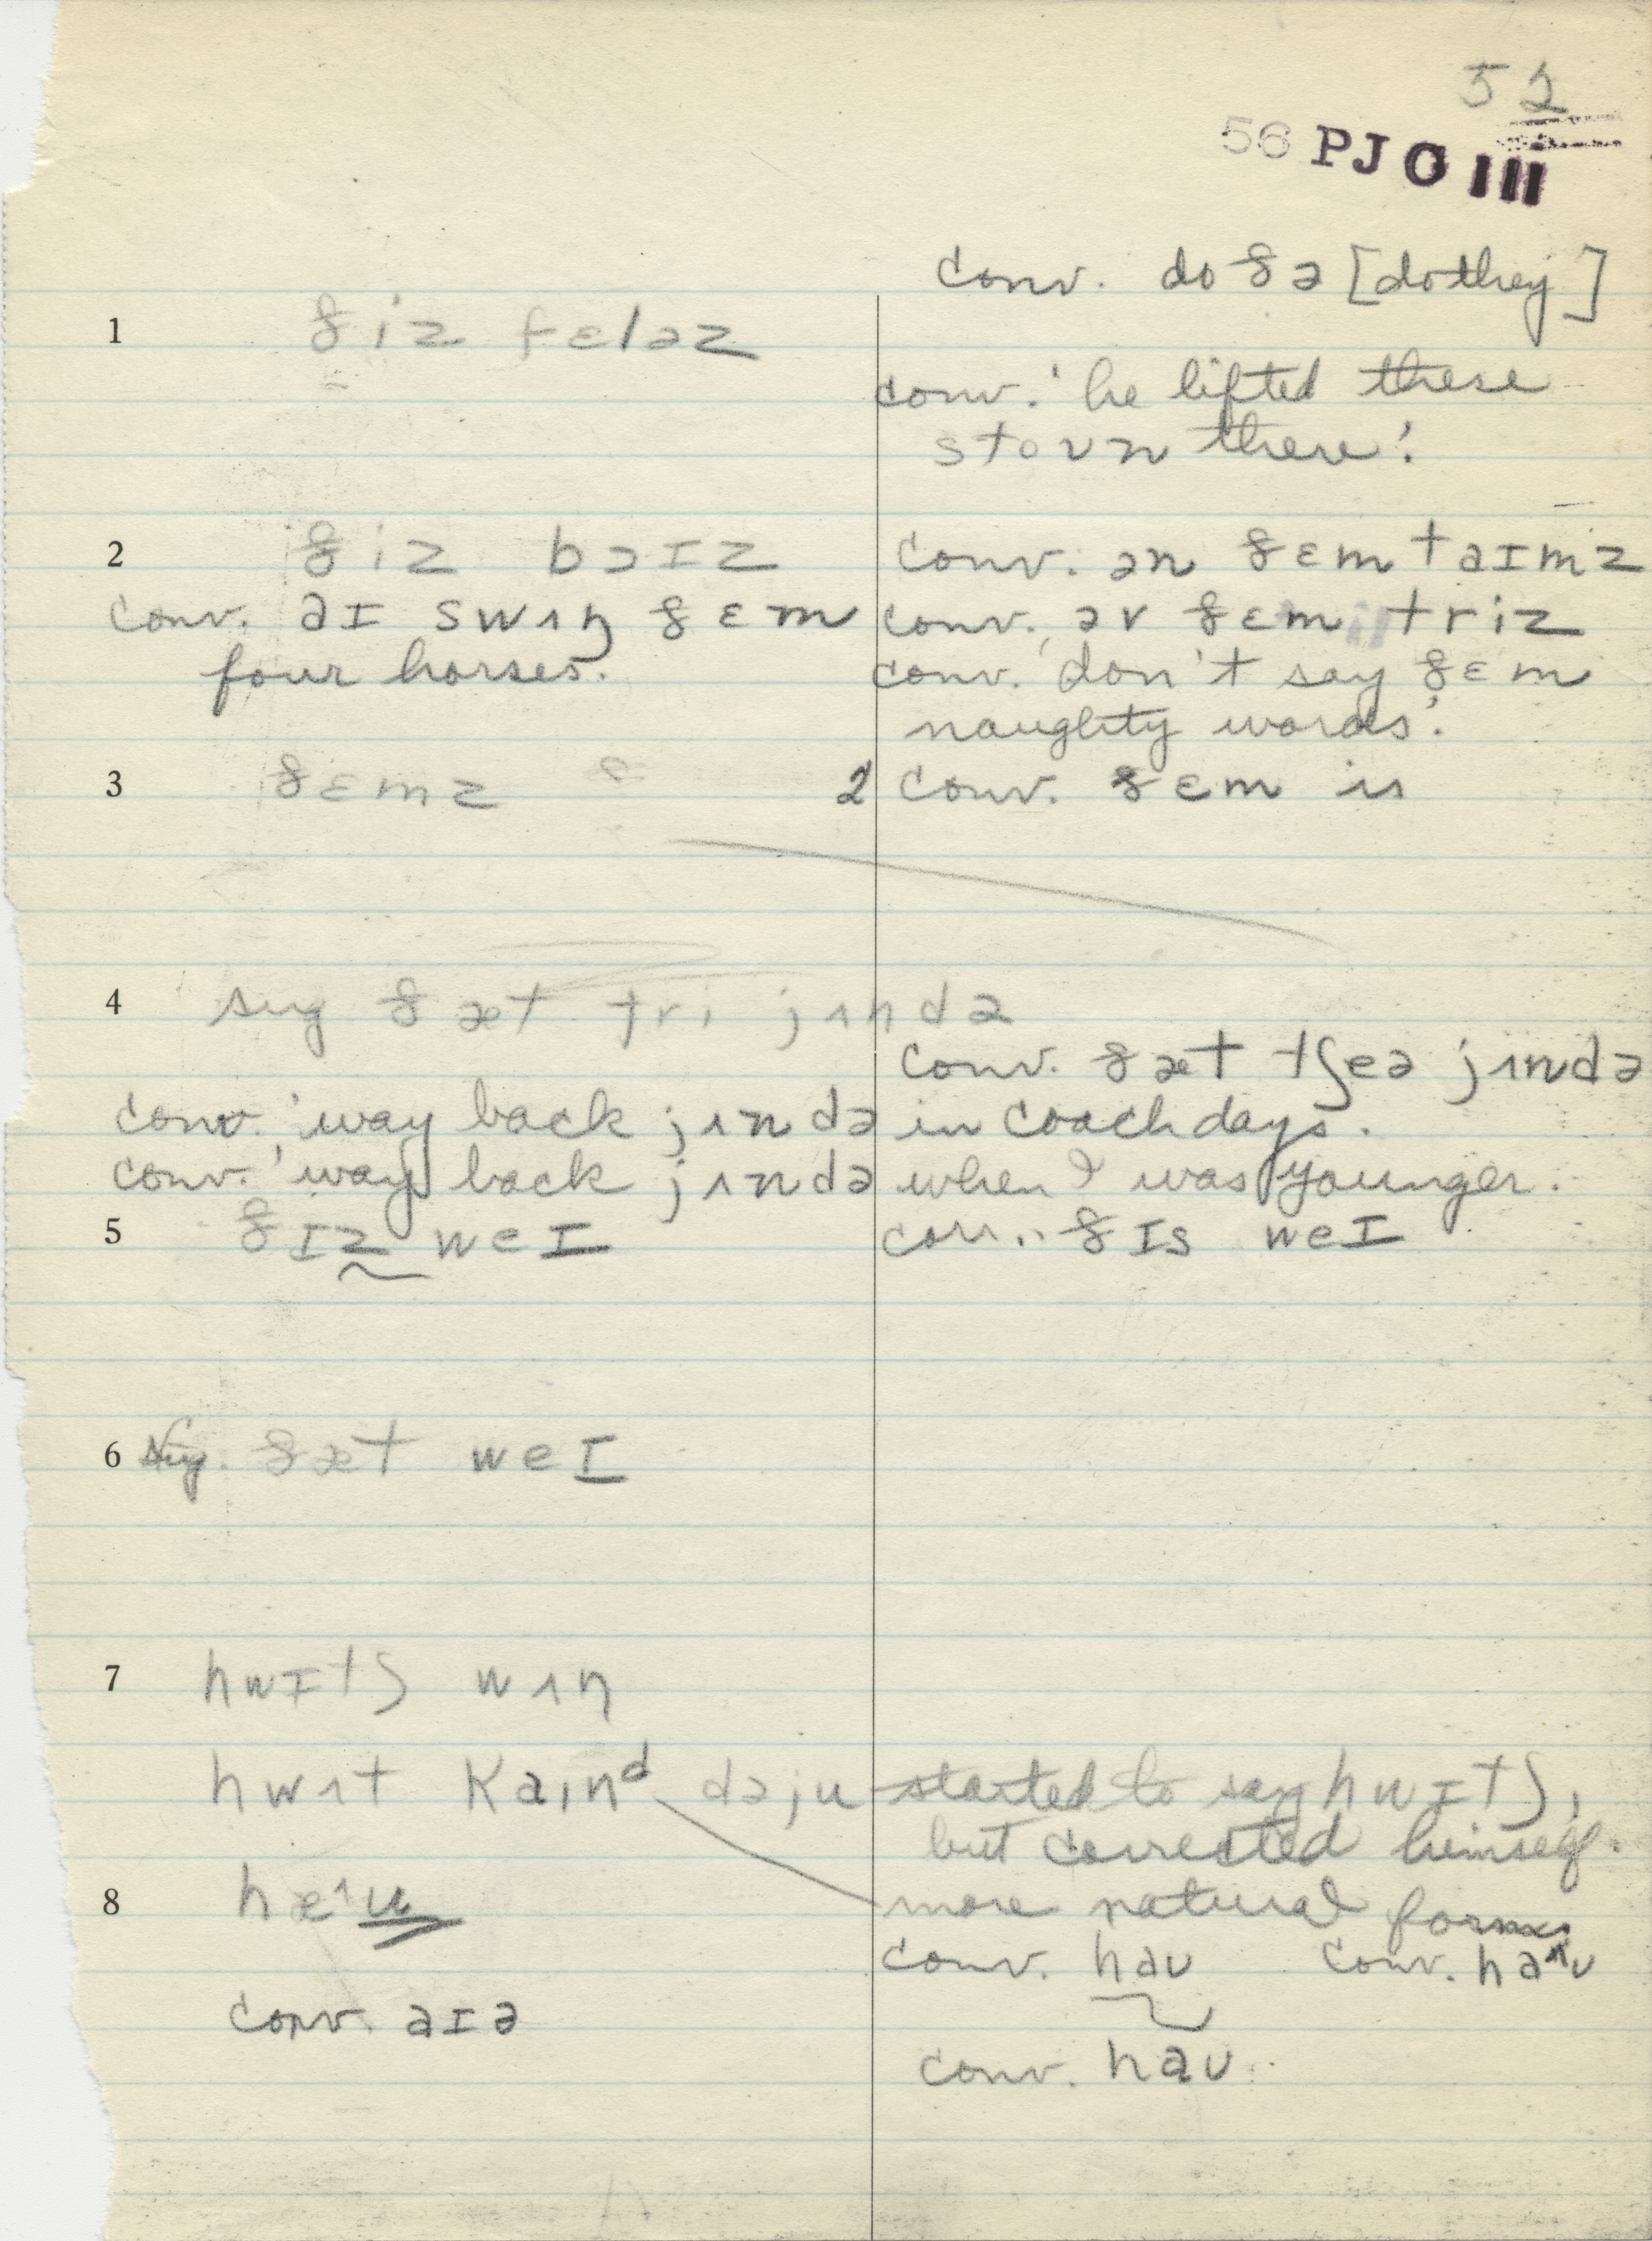 52
56 PJO III
conv. do ðə [do they]
1 ðiz fɛləz
conv. 'he lifted these
stoun there'.
2 ðiz bɔɪz
conv. ən ðɛm taɪmz
conv. aɪ swʌŋ ðɛm
four horses.
conv. əv ðɛm triz
conv. 'don't say ðɛm
naughty words'.
3 ðɛmz
2 conv. ðɛm is
4 sug ðæt tri jʌndə
conv. ðæt tʃeə jʌndə
conv. 'way back jʌndə in coach days.
conv. 'way back jʌndə when I was younger.
5 ðɪz weɪ
conv. ðɪs weɪ
6 sug. ðæt weɪ
7 hwɪtʃ wʌn
hwʌt kaɪnᵈ dəju
started to say hwɪtʃ,
but corrected himself.
more natural forms
8 hæ^u
conv. haʊ conv. ha^ʊ
conv. aɪə
conv. haʊ